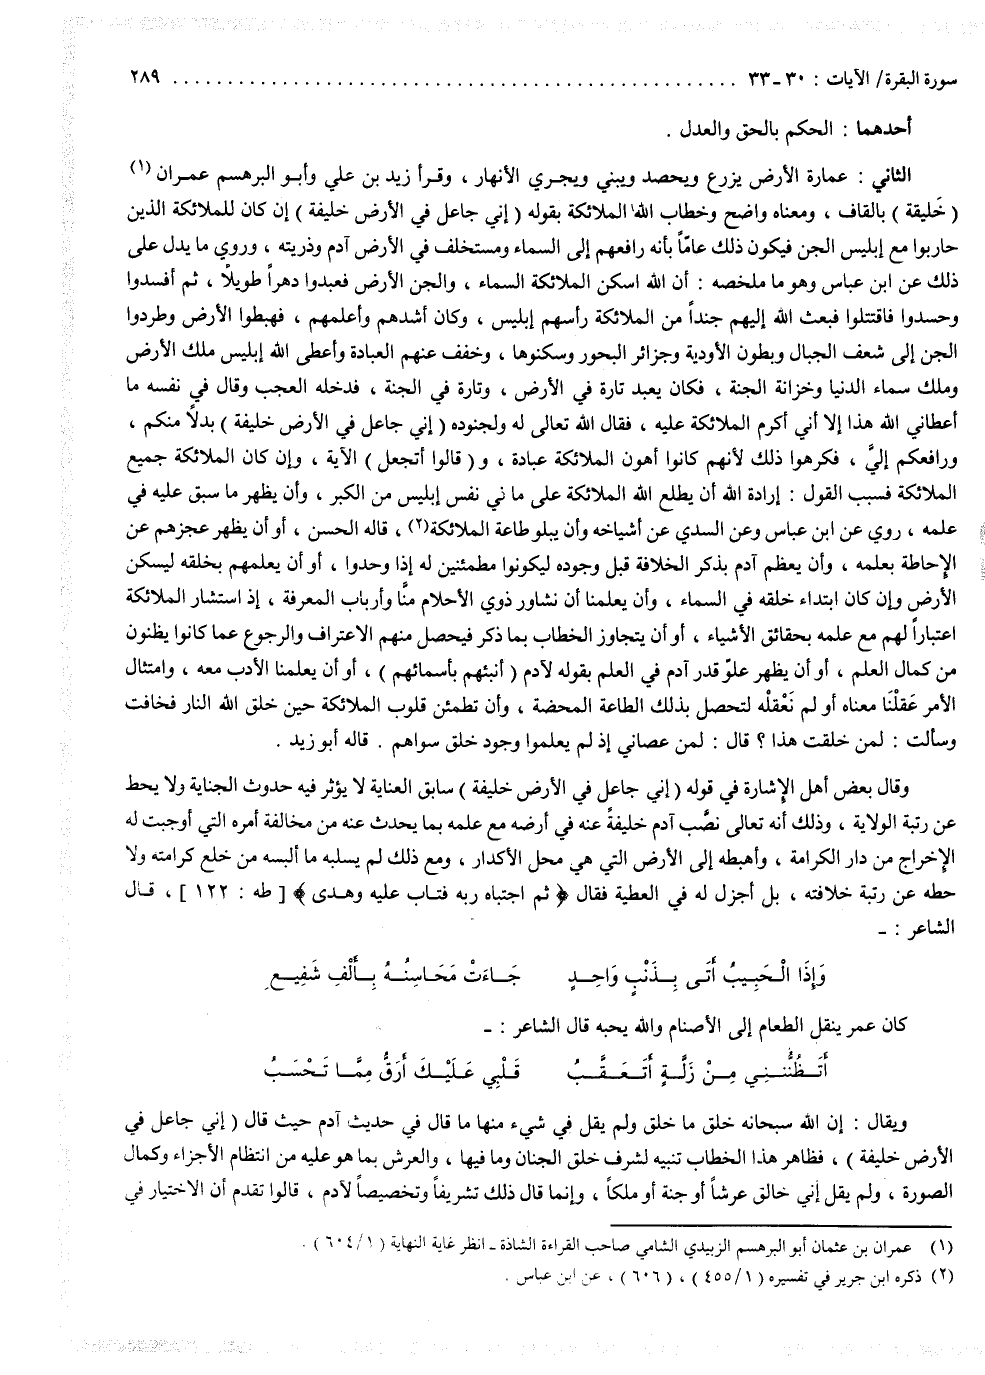 سورة البقرة/ الآيات : ٣٠ ـ ٣٣ ........................................................ ٢٨٩
أحدهما : الحكم بالحق والعدل .
الثاني : عمارة الأرض يزرع ويحصد ويبني ويجري الأنهار ، وقرأ زيد بن علي وأبو البرهسم عمران (١)
( خَليقة ) بالقاف ، ومعناه واضح وخطاب الله الملائكة بقوله ( إني جاعل في الأرض خليفة ) إن كان للملائكة الذين
حاربوا مع إبليس الجن فيكون ذلك عامّاً بأنه رافعهم إلى السماء ومستخلف في الأرض آدم وذريته ، وروي ما يدل على
ذلك عن ابن عباس وهو ما ملخصه : أن الله اسكن الملائكة السماء ، والجن الأرض فعبدوا دهراً طويلاً ، ثم أفسدوا
وحسدوا فاقتتلوا فبعث الله إليهم جنداً من الملائكة رأسهم إبليس ، وكان أشدهم وأعلمهم ، فهبطوا الأرض وطردوا
الجن إلى شعف الجبال وبطون الأودية وجزائر البحور وسكنوها ، وخفف عنهم العبادة وأعطى الله إبليس ملك الأرض
وملك سماء الدنيا وخزانة الجنة ، فكان يعبد تارة في الأرض ، وتارة في الجنة ، فدخله العجب وقال في نفسه ما
أعطاني الله هذا إلا أني أكرم الملائكة عليه ، فقال الله تعالى له ولجنوده ( إني جاعل في الأرض خليفة ) بدلاً منكم ،
ورافعكم إليَّ ، فكرهوا ذلك لأنهم كانوا أهون الملائكة عبادة ، و( قالوا أتجعل ) الآية ، وإن كان الملائكة جميع
الملائكة فسبب القول : إرادة الله أن يطلع الله الملائكة على ما ني نفس إبليس من الكبر ، وأن يظهر ما سبق عليه في
علمه ، روي عن ابن عباس وعن السدي عن أشياخه وأن يبلو طاعة الملائكة(٢) ، قاله الحسن ، أو أن يظهر عجزهم عن
الإحاطة بعلمه ، وأن يعظم آدم بذكر الخلافة قبل وجوده ليكونوا مطمئنين له إذا وحدوا ، أو أن يعلمهم بخلقه ليسكن
الأرض وإن كان ابتداء خلقه في السماء ، وأن يعلمنا أن نشاور ذوي الأحلام منّا وأرباب المعرفة ، إذ استشار الملائكة
اعتباراً لهم مع علمه بحقائق الأشياء ، أو أن يتجاوز الخطاب بما ذكر فيحصل منهم الاعتراف والرجوع عما كانوا يظنون
من كمال العلم ، أو أن يظهر علوّ قدر آدم في العلم بقوله لآدم ( أنبئهم بأسمائهم ) ، أو أن يعلمنا الأدب معه ، وامتثال
الأمر عَقلْنَا معناه أو لم نَعْقلْه لتحصل بذلك الطاعة المحضة ، وأن تطمئن قلوب الملائكة حين خلق الله النار فخافت
وسألت : لمن خلقت هذا ؟ قال : لمن عصاني إذ لم يعلموا وجود خلق سواهم . قاله أبو زيد .
وقال بعض أهل الإشارة في قوله ( إني جاعل في الأرض خليفة ) سابق العناية لا يؤثر فيه حدوث الجناية ولا يحط
عن رتبة الولاية ، وذلك أنه تعالى نصَّب آدم خليفةً عنه في أرضه مع علمه بما يحدث عنه من مخالفة أمره التي أوجبت له
الإخراج من دار الكرامة ، وأهبطه إلى الأرض التي هي محل الأكدار ، ومع ذلك لم يسلبه ما ألبسه من خلع كرامته ولا
حطه عن رتبة خلافته ، بل أجزل له في العطية فقال ﴿ ثم اجتباه ربه فتاب عليه وهدى ﴾ [ طه : ١٢٢ ] ، قال
الشاعر : ـ
وَإِذَا الْحَبِيبُ أَتَى بِذَنْبٍ وَاحِدٍ جَاءَتْ مَحَاسِنُهُ بِأَلْفِ شَفِيعِ
كان عمر ينقل الطعام إلى الأصنام والله يحبه قال الشاعر : ـ
أَتَظُنُّنِي مِنْ زَلَّةٍ أَتَعَقَّبُ قَلْبِي عَلَيْكَ أَرَقُّ مِمَّا تَحْسَبُ
ويقال : إن الله سبحانه خلق ما خلق ولم يقل في شيء منها ما قال في حديث آدم حيث قال ( إني جاعل في
الأرض خليفة ) ، فظاهر هذا الخطاب تنبيه لشرف خلق الجنان وما فيها ، والعرش بما هو عليه من انتظام الأجزاء وكمال
الصورة ، ولم يقل إني خالق عرشاً أو جنة أو ملكاً ، وإنما قال ذلك تشريفاً وتخصيصاً لآدم ، قالوا تقدم أن الاختيار في
(١) عمران بن عثمان أبو البرهسم الزبيدي الشامي صاحب القراءة الشاذة ـ انظر غاية النهاية ( ٦٠٤/١ ) .
(٢) ذكره ابن جرير في تفسيره ( ٤٥٥/١ ) ، ( ٦٠٦ ) ، عن ابن عباس .